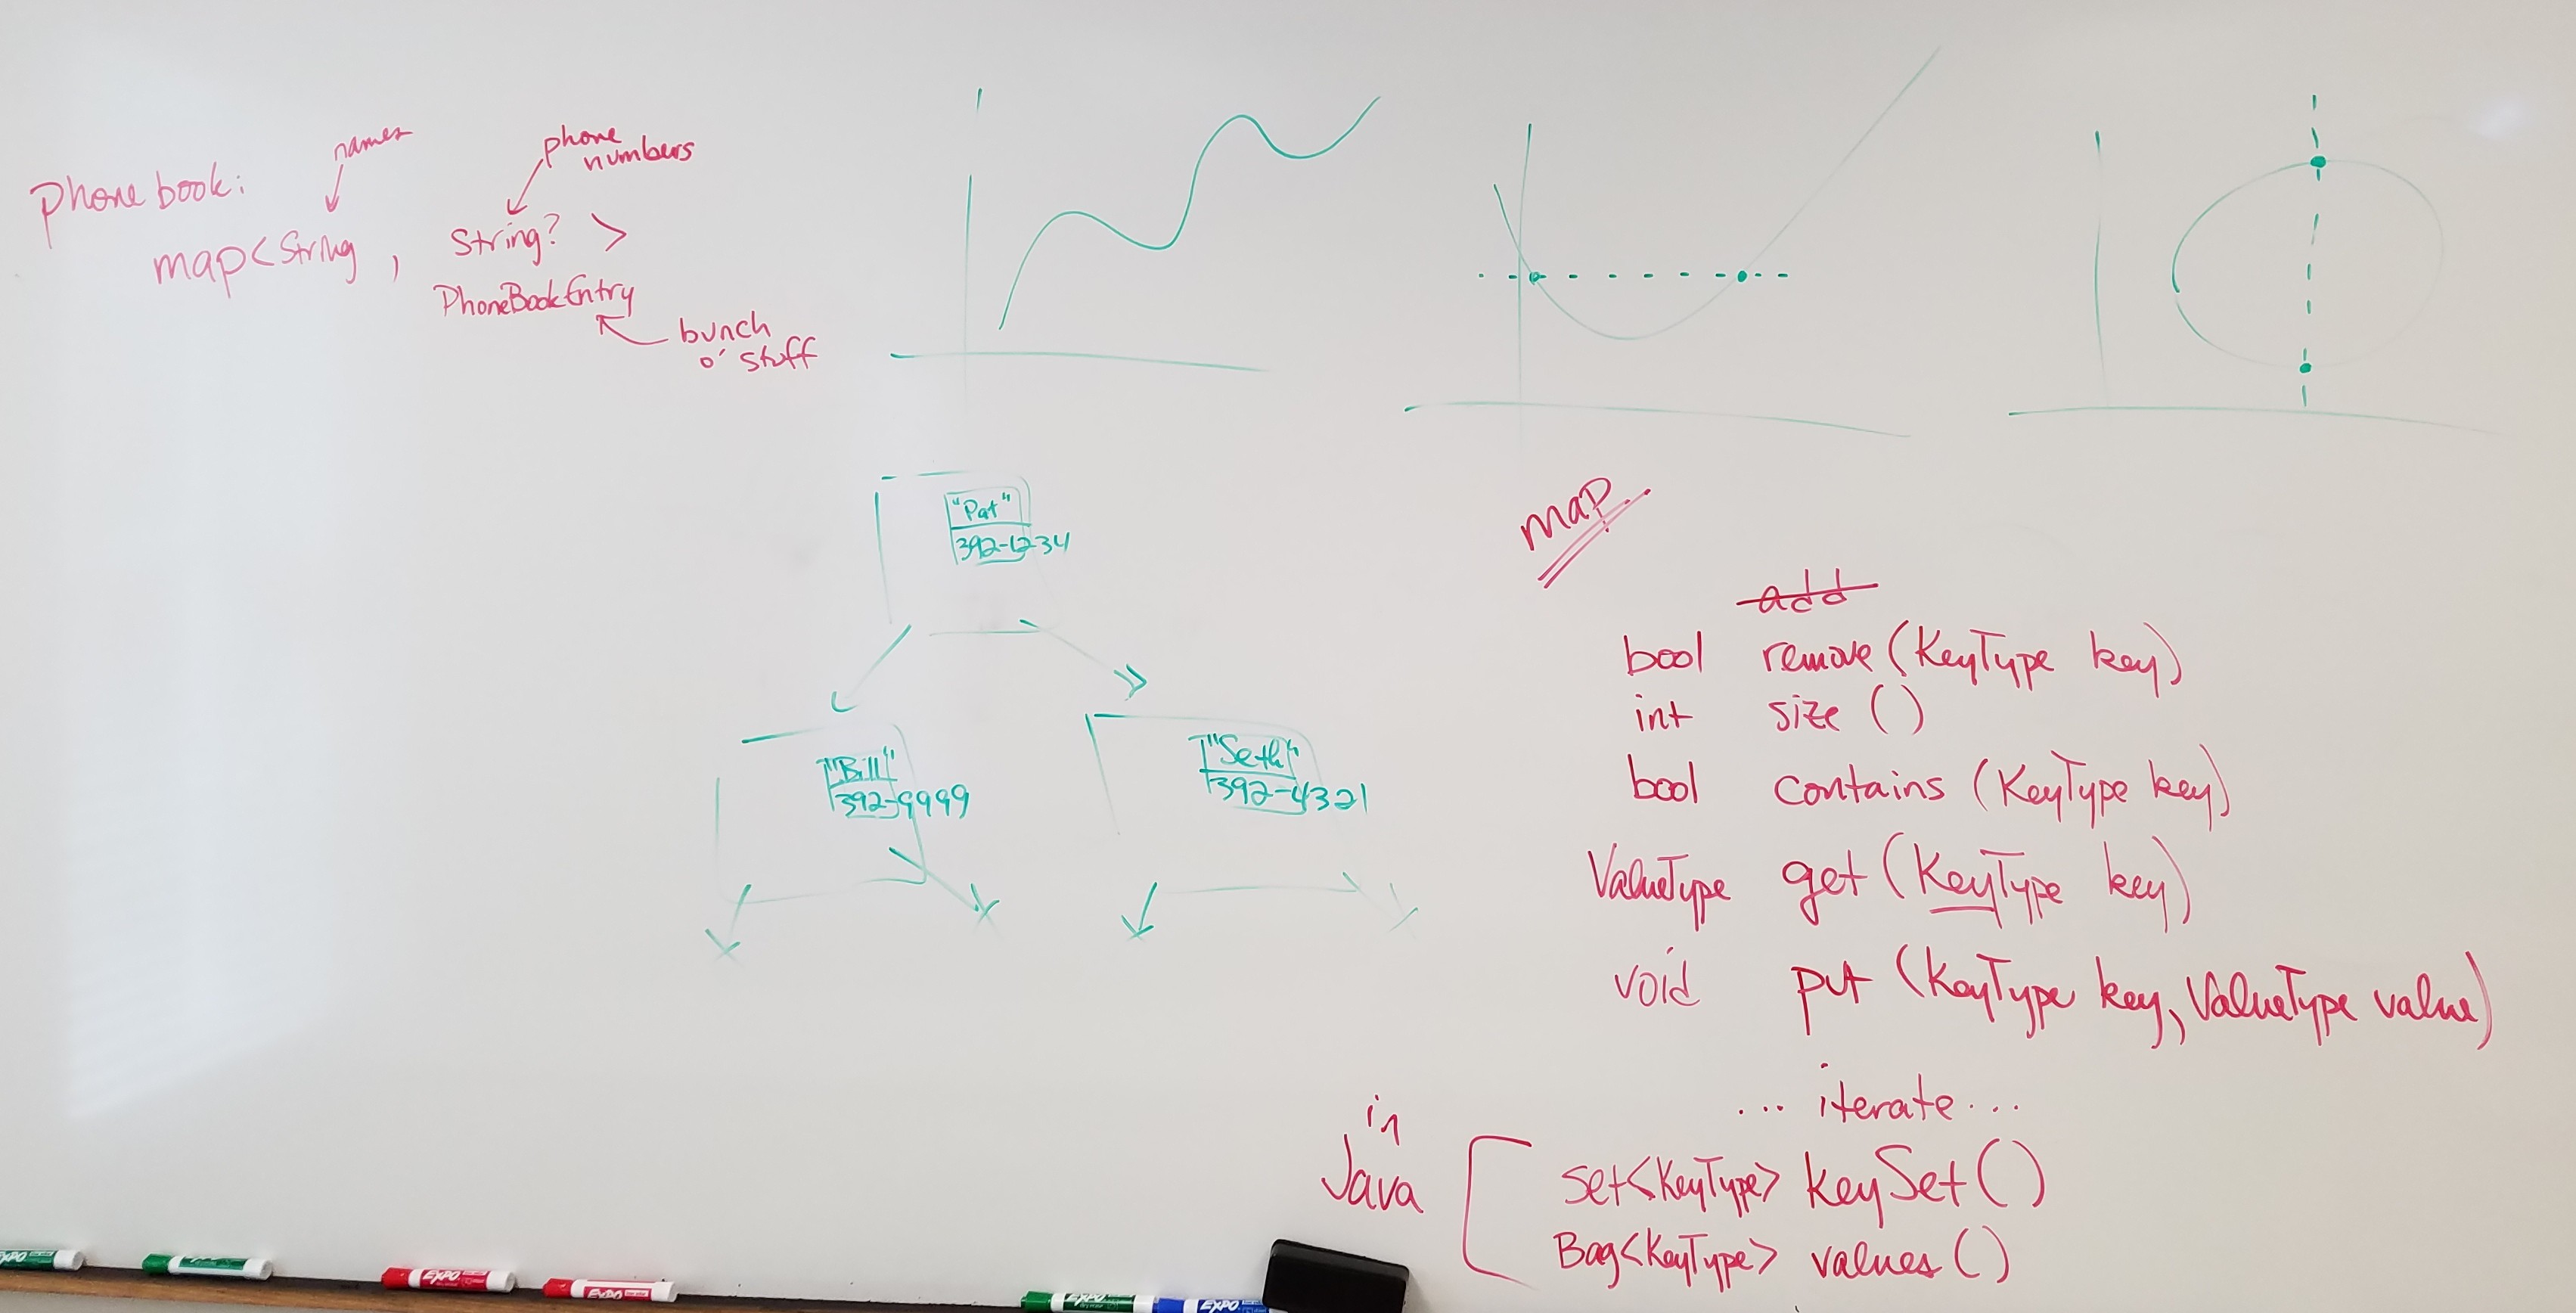 names
phone
numbers
Phone book:
map<String, String? >
PhoneBookEntry
bunch
o' stuff
"Pat"
392-1234
"Bill"
392-9999
"Seth"
392-4321
map
add
bool remove (KeyType key)
int size ()
bool contains (KeyType key)
ValueType get (KeyType key)
void put (KeyType key, ValueType value)
... iterate ...
in
Java
set<KeyType> keySet()
Bag<KeyType> values()
EXPO
EXPO
EXPO
EXPO
EXPO